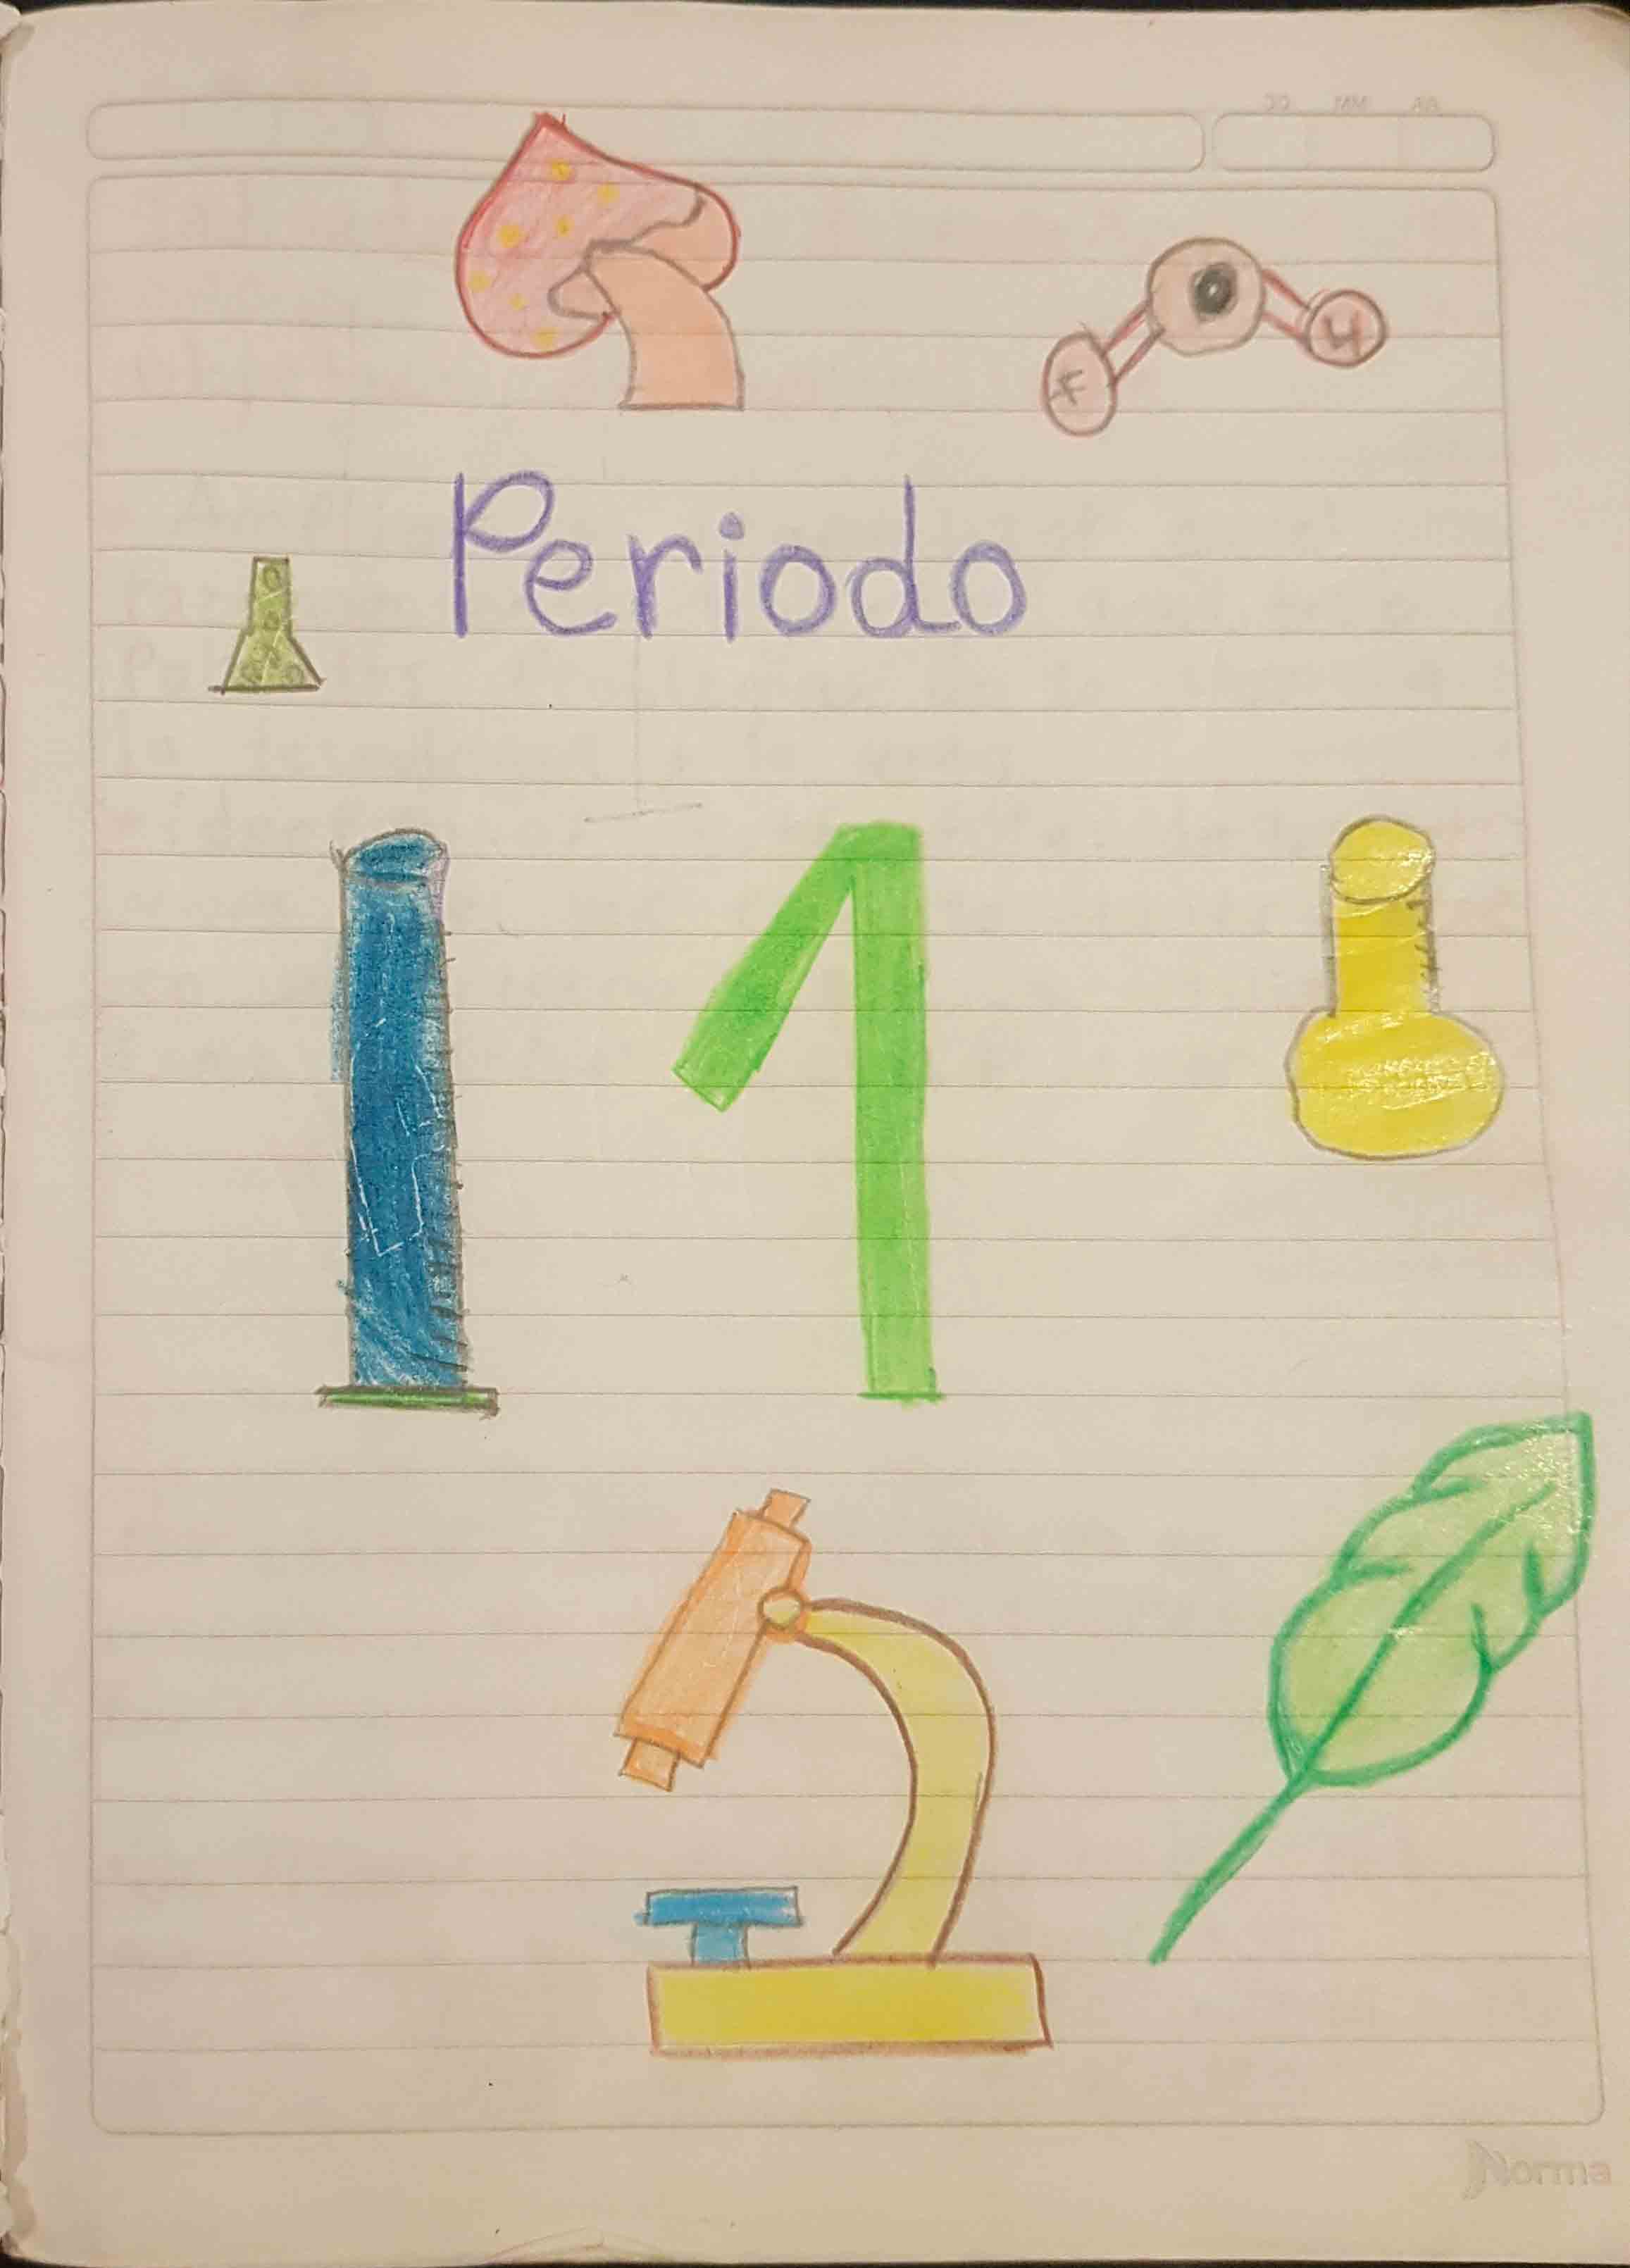 CC MM AA
F H
Periodo
1
Norma